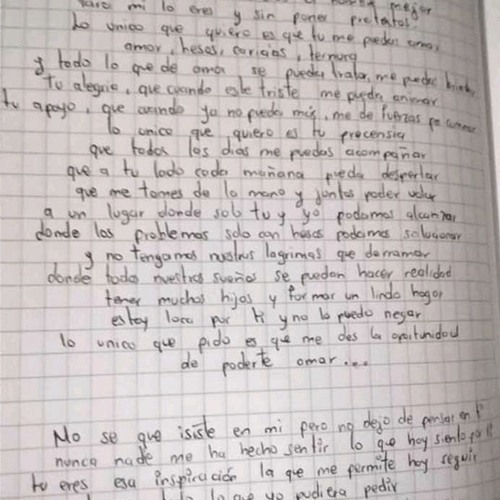 mejor
para mi lo eres y sin poner pretextos
Lo unico que quiero es que tu me puedas amar
amor, besos, caricias, ternura
y todo lo que de amar se pueda tratar, me puedas
tu alegria, que cuando este triste me pueda animar
tu apoyo, que cuando ya no pueda más, me de fuerzas pa
lo unico que quiero es tu precencia
que todos los dias me puedas acompañar
que a tu lado cada mañana pueda despertar
que me tomes de la mano y juntos poder volar
a un lugar donde solo tu y yo podamos alcanzar
donde los problemas solo con besos podamos solucionar
y no tengamos nuestras lagrimas que derramar
donde todos nuestros sueños se puedan hacer realidad
tener muchos hijos y formar un lindo hogar
estoy loca por ti y no lo puedo negar
lo unico que pido es que me des la oportunidad
de poderte amar....
No se que isiste en mi pero no dejo de pensar en
nunca nade me ha hecho sentir lo que hoy siento por
tu eres esa inspiración la que me permite hoy seguir
lo que yo pudiera pedir